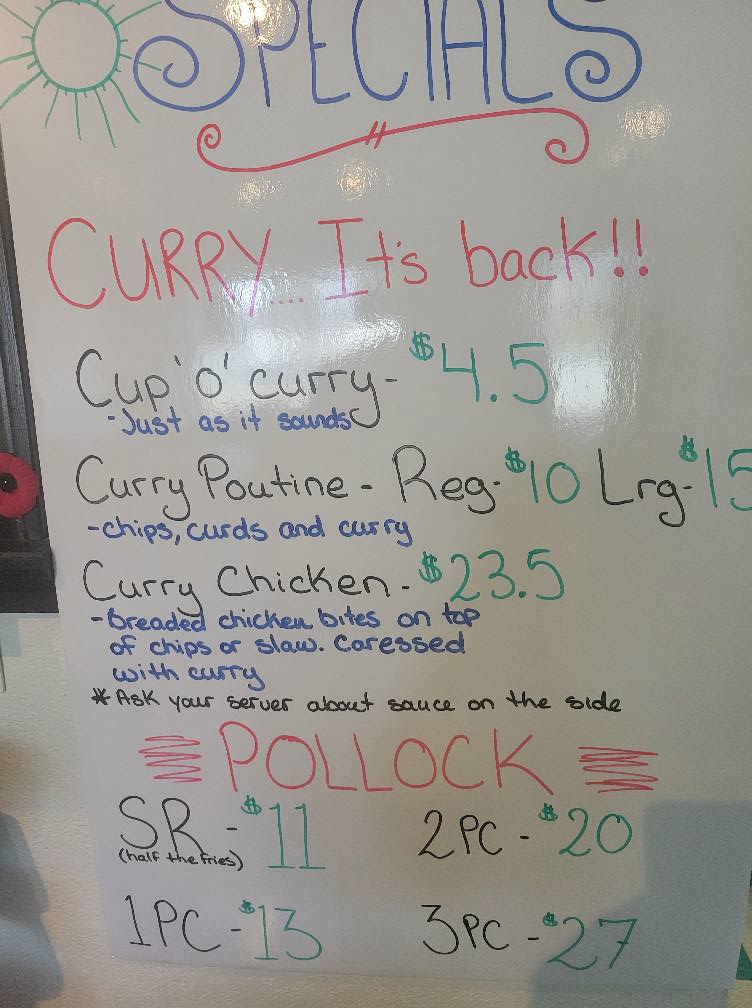 SPECIALS
CURRY.... It's back!!
Cup 'o' curry- $4.5
-Just as it sounds
Curry Poutine - Reg- $10 Lrg- $15
-chips, curds and curry
Curry Chicken - $23.5
-Breaded chicken bites on top
of chips or slaw. Caressed
with curry
*Ask your server about sauce on the side
POLLOCK
SR - $11 2PC - $20
(half the fries)
1PC - $13 3PC - $27